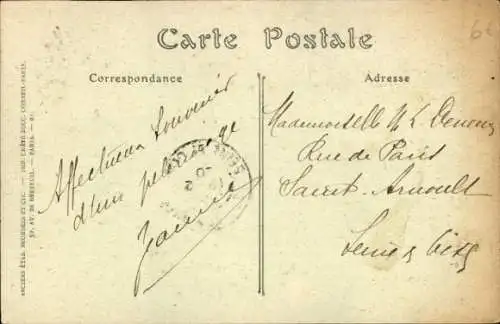 Carte Postale
Correspondance
Adresse
Affectueux Souvenir
d'un pelerinage
Mademoiselle
Rue de Paris
Saint-Arnoult
Seine & Oise
ANCIENS ÉTAB. NEURDEIN ET CIE.